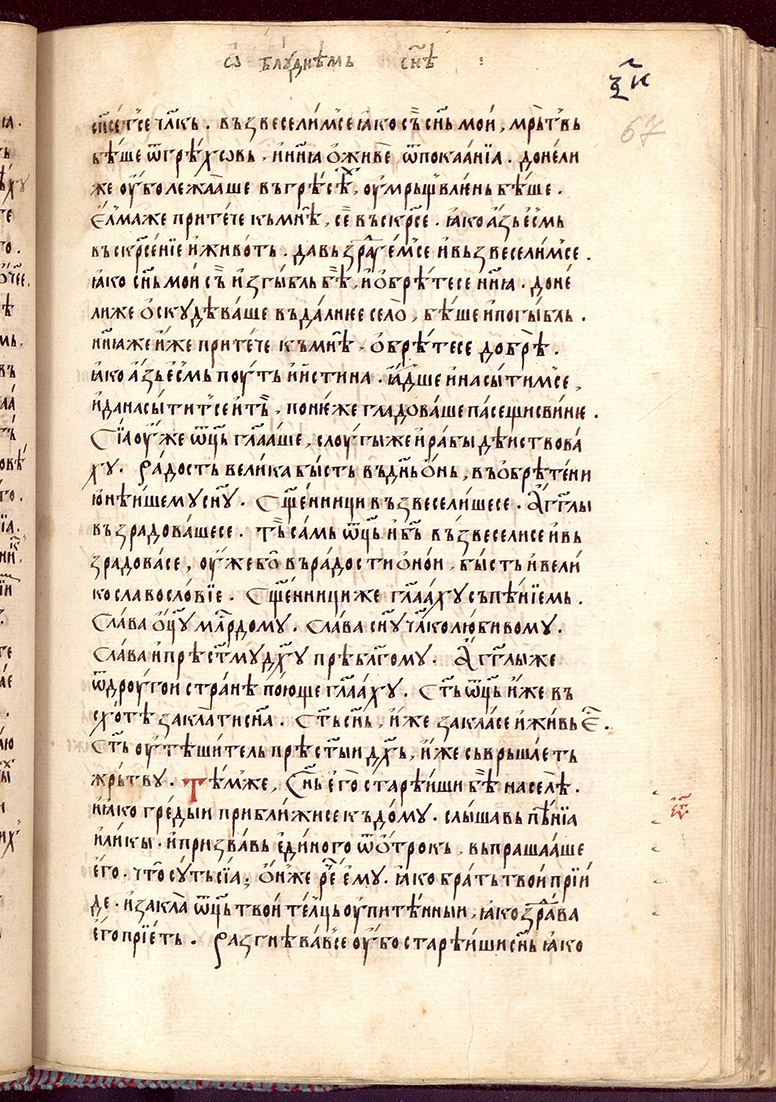 ѡ҃ блꙋднѣмь сн҃ѣ :
ѯ҃и
67
сп҃сет҇се чл҃кь . възвеселим҇се ꙗко съ̏ сн҃ь мои , мрь́твь
бѣ́ше ѿгрѣ́хѡвь . и҆ н҃нıа ѻ҆живе̏ ѿпокаа́нїа . донѐли
же ѹ҆́бо лежа̀аше въгрѣсѣ́х , ѹ҆мрьщвлѥ́нь бѣ́ше .
є҆лма́же прите́че къмнѣ̀ , сѐ въскр҃се . ꙗ҆ко а҆́зь є҆́смь
въскр҃се́нїе и҆ живо́ть . да възра́дꙋем҇се и҆ възвесели́м҇се .
ꙗко сн҃ь мои съ̏ и҆згы́бль бѣ̏ , и҆ ѻ҆брѣ́тесе н҃нıа . доне́
лиже ѻ҆скꙋдѣва́ше въда́лнѥе село̀ , бѣ́ше и҆ погы́бль .
н҃нıа же и҆́же прите́че къмнѣ̀ . ѻ҆брѣ́тесе добрѣ̀ .
ꙗко а҆́зь є҆́смь пѹ́ть и҆ и҆́стина . ꙗ҆́дше и҆ насы́тим҇се ,
и҆ да насы́тит҇се и҆ тъ̏ , поне́же гладова́ше пасещи сви́нѥ .
Сїа ѹ҆́же ѿц҃ь гл҃а́аше , слѹ́гы же и҆ рабы̀ дѣ́иствова
хꙋ . Ра́дость вели́ка бы́сть въ дн҃ь ѻ҆́нь , въ ѻ҆брѣте́ни
ю҆нѣ́ишемꙋ сн҃ꙋ . Сщ҃е́нници възвесели́шесе . А҆́гг҃лы
възра́довашесе . тъ̏ са́мь ѿц҃ь и҆ бг҃ь възвесели́се и҆ вь
зра́довасе , ѹ҆́же бо̀ въ ра́дости ѻ҆́нои . бы́сть и҆ вели́
ко славосло́вїе . Сщ҃е́нници же гл҃а́ахꙋ съпѣ́нїемь .
Сла́ва ѻ҆ц҃ꙋ млр҇дому . Сла́ва сн҃ꙋ чл҃колю́бивому .
Сла́ва и҆ прѣст҃мꙋ дх҃ꙋ прѣбл҃гому . А҆́гг҃лы же
ѿдрѹгои стра́нѣ пою́ще гл҃а́ахꙋ . Ст҃ь ѿц҃ь и҆́же въ
схо́тѣ закла́ти сн҃а . Ст҃ь сн҃ь , и҆́же закла́се и҆ жи́вь є҆̀ .
Ст҃ь ѹ҆тѣ́шитель прѣст҃ыи дх҃ь , и҆́же съврьша́еть
жрь́твꙋ . Тѣ́мже , Сн҃ь є҆го̀ старѣ́иши бѣ̏ на селѣ̀ .
и҆ ꙗко гре́дыи прибли́жисе къ до́мꙋ . слы́шавь пѣ́нїа
и҆ ли́кы . и҆ призва́вь є҆ди́ного ѿѻ҆́трокь , въпраша́аше
є҆го̀ . что̀ сꙋ́ть сїа̀ ; ѻ҆́н же ре҇ч є҆мꙋ̀ . ꙗко бра́ть твои прїи
де . и҆ закла̀ ѿц҃ь твои те́лць ѹ҆пите́нныи , ꙗко здра́ва
є҆го̀ прїе́ть . Разгнѣва́в҇се ѹ҆́бо старѣ́иши сн҃ь ꙗко